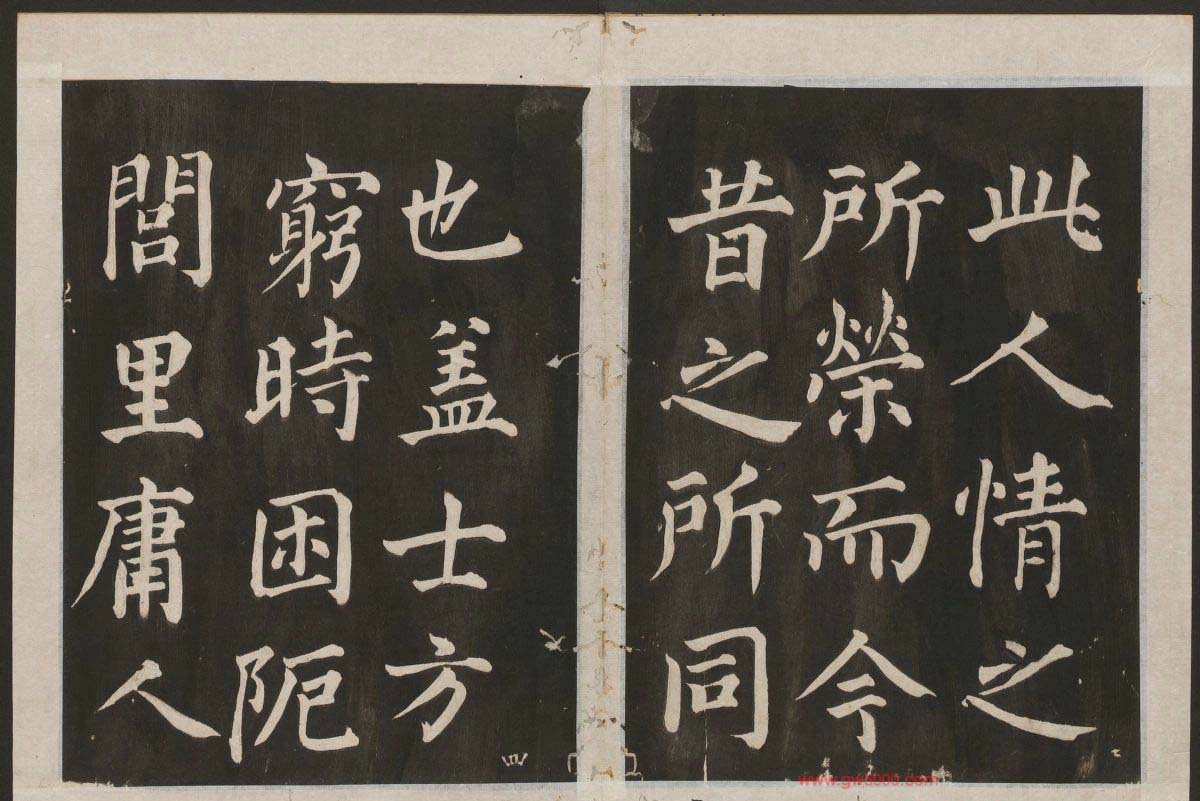 此人情之
所榮而今
昔之所同
也盖士方
窮時困阨
閭里庸人
四
www.gws000.com